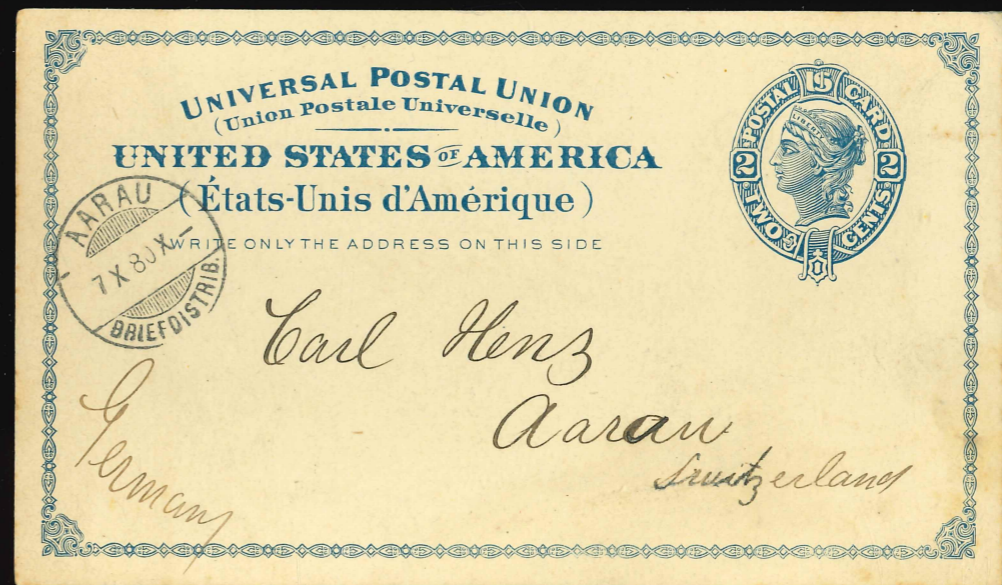 UNIVERSAL POSTAL UNION
(Union Postale Universelle)
UNITED STATES OF AMERICA
(États-Unis d'Amérique)
WRITE ONLY THE ADDRESS ON THIS SIDE
U.S. POSTAL CARD
LIBERTY
2 2
TWO CENTS
AARAU
7 X 80 X–
BRIEFDISTRIB.
Carl Henz
Aarau
Switzerland
Germany